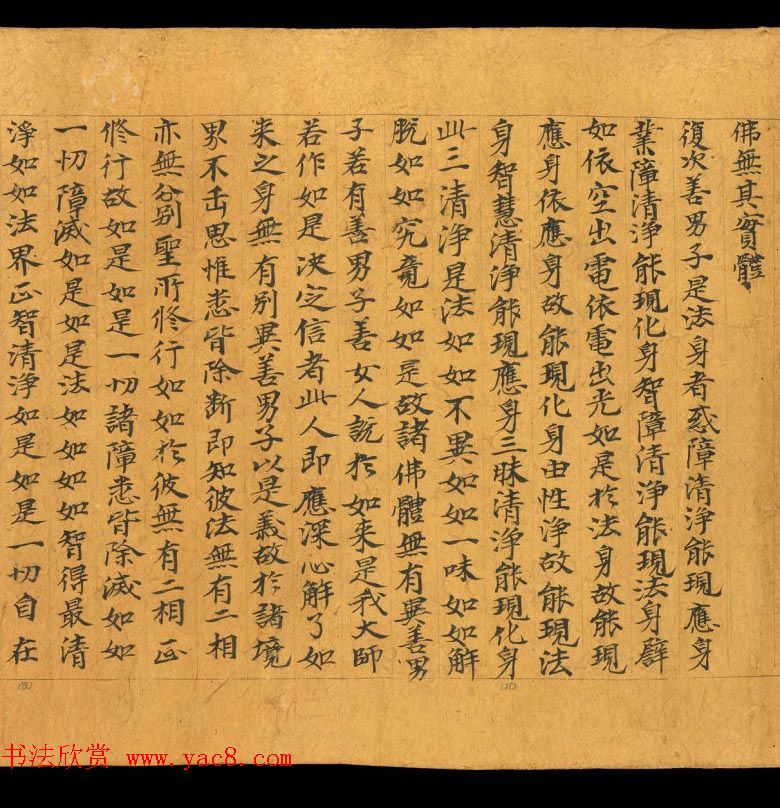 佛無其實體
復次善男子是法身者惑障清淨能現應身
業障清淨能現化身智障清淨能現法身譬
如依空出電依電出光如是於法身故能現
應身依應身故能現化身由性淨故能現法
身智慧清淨能現應身三昧清淨能現化身
此三清淨是法如如不異如如一味如如解
脫如如究竟如如是故諸佛體無有異善男
子若有善男子善女人說於如來是我大師
若作如是決定信者此人即應深心解了如
來之身無有別異善男子以是義故於諸境
界不正思惟悉皆除斷即知彼法無有二相
亦無分別聖所修行如如於彼無有二相正
修行故如是如是一切諸障悉皆除滅如如
一切障滅如是如是法如如如如智得最清
淨如如法界正智清淨如是如是一切自在
书法欣赏 www.yac8.com